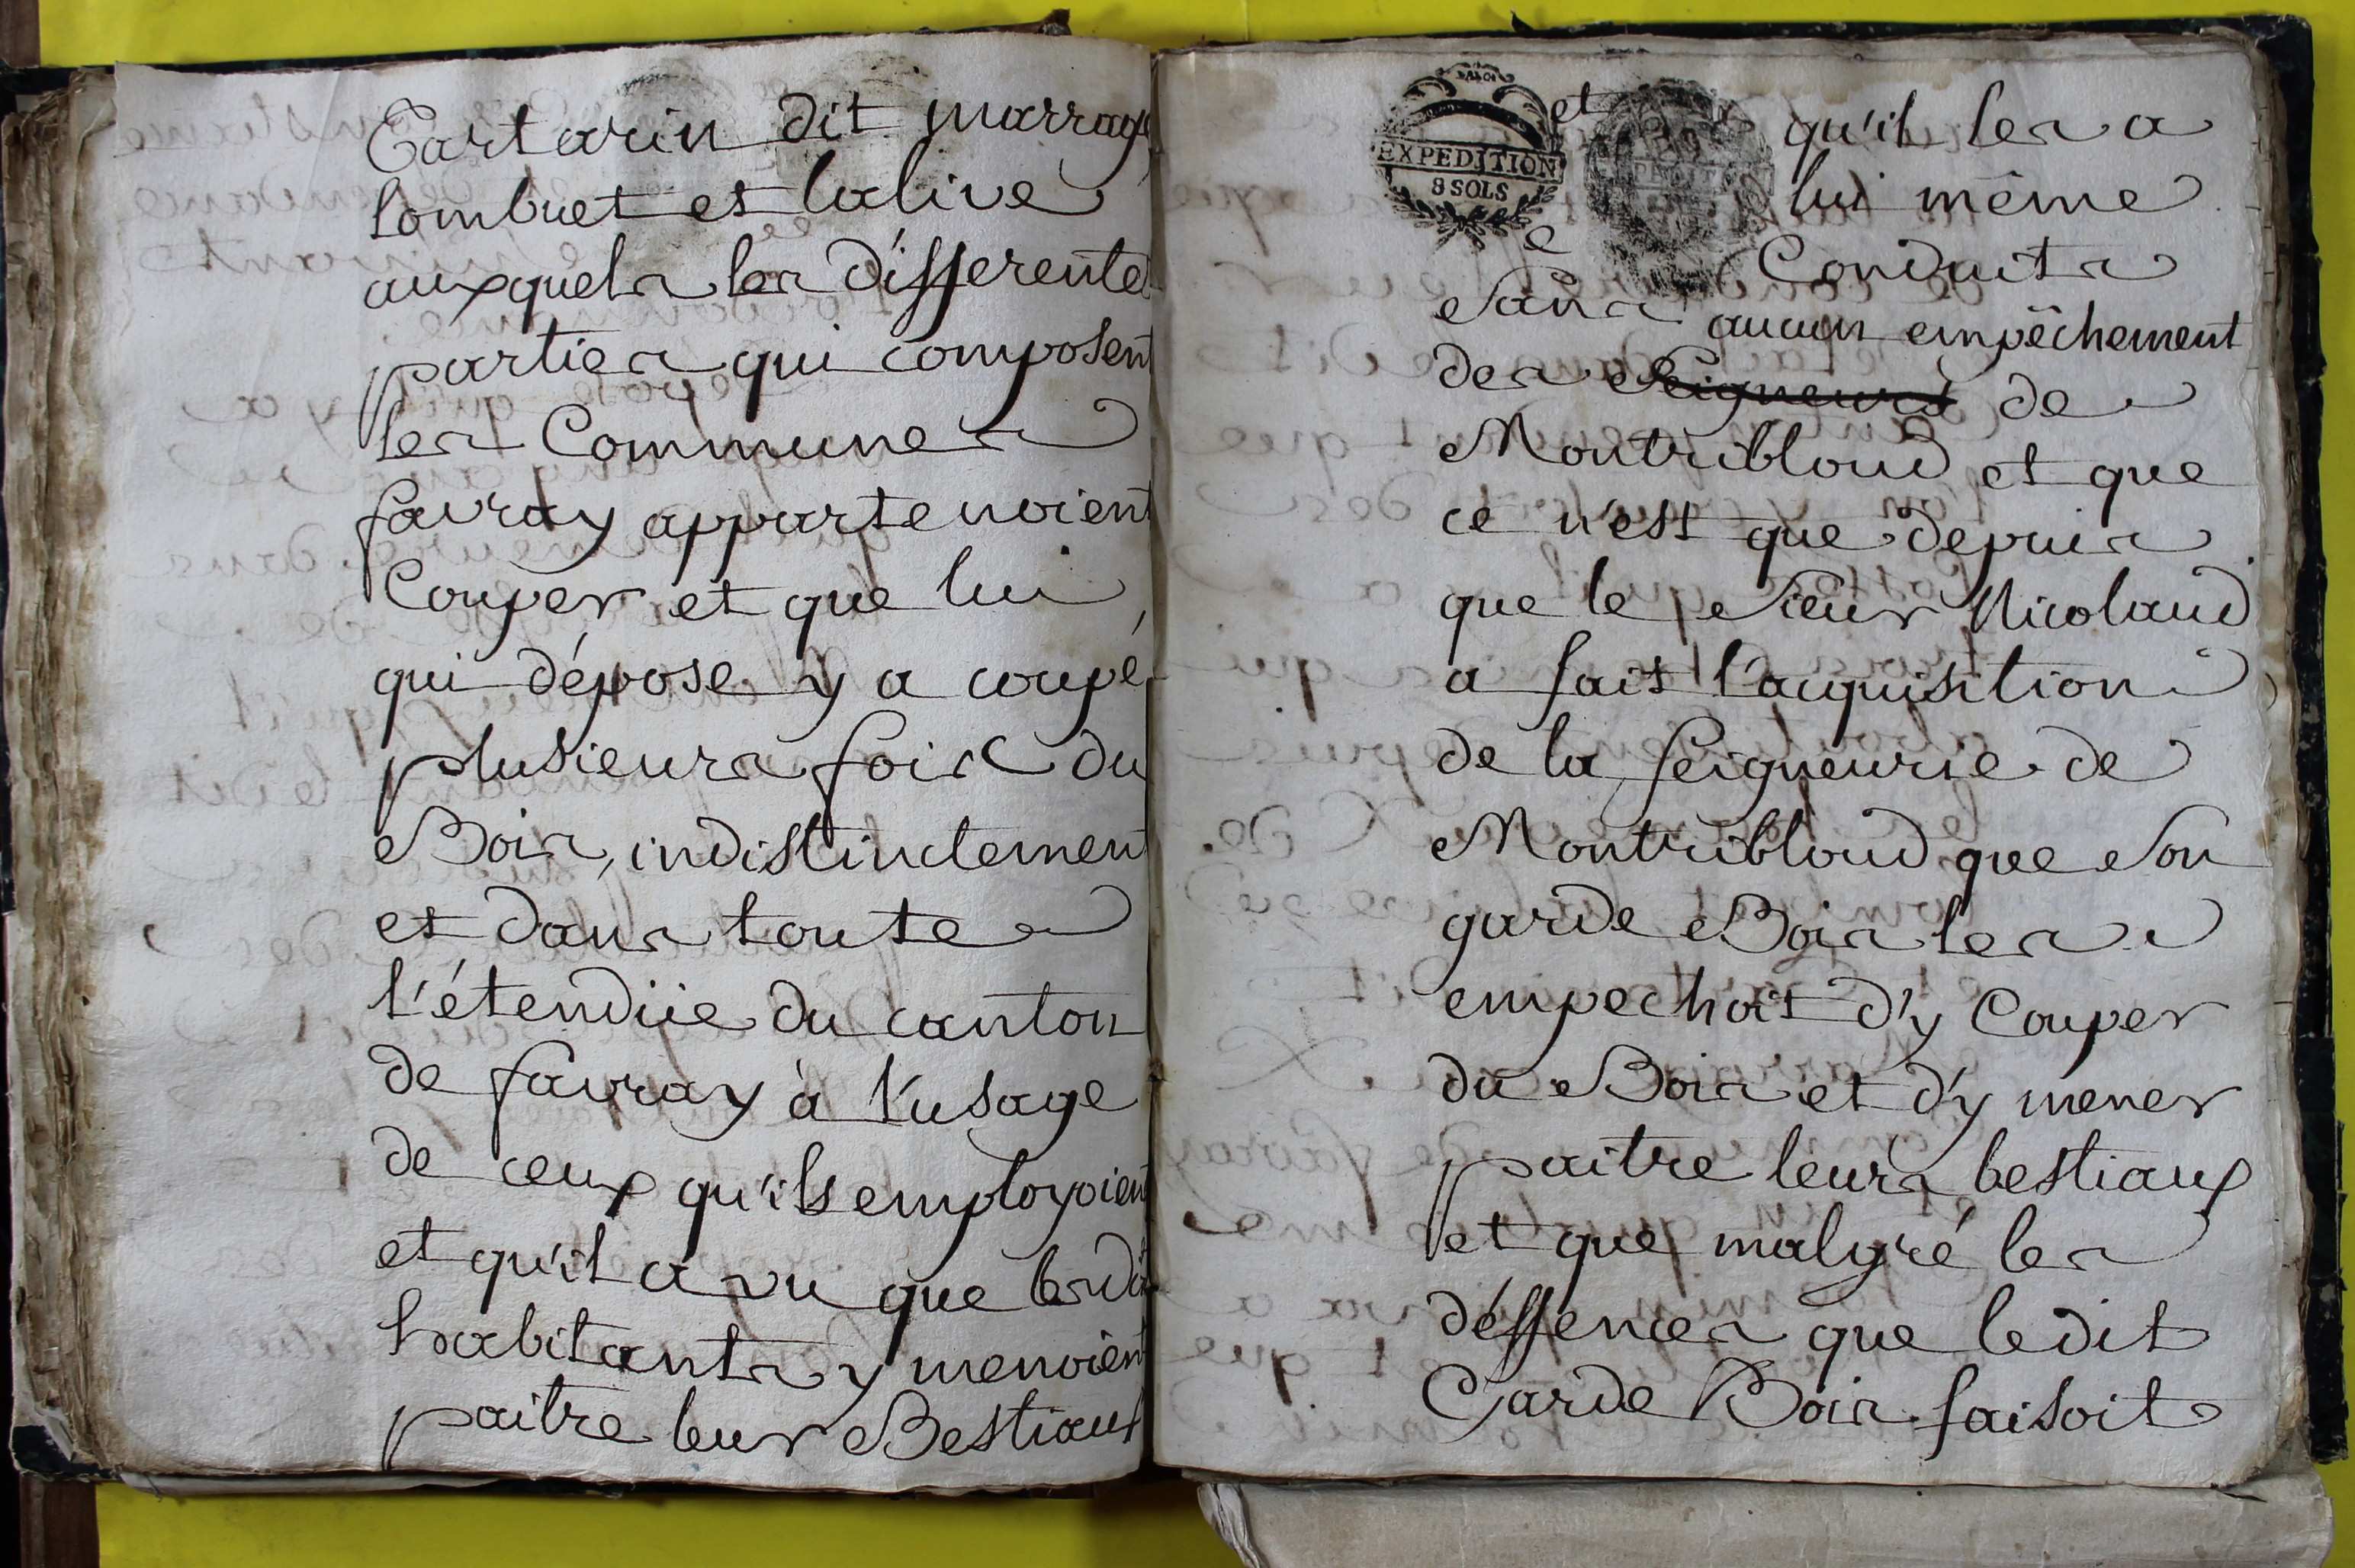 Cartarin dit marrage
lombret et lalive
auxquels les différentes
parties qui composent
les Communes
favray appartenoient
Couper et que lui,
qui dépose y a coupé,
plusieurs fois du
Bois, indistinctement
et dans toute
l'étendüe du canton
de favray à l'usage
de ceux qu'ils employoient
et qu'il a vu que lesdits
habitants y menoient
paitre leur Bestiaux
EXPEDITION
8 SOLS
et qu'il les a
lui même
Conduits
sans aucun empêchement
des Seigneurs de
Montribloud et que
ce n'est que depuis
que le sieur Nicolaud
a fait l'acquisition
de la seigneurie de
Montribloud que son
garde Bois les
empechoit d'y Couper
du Bois et d'y mener
paitre leurs bestiaux
et que malgré les
déffences que ledit
Garde Bois faisoit